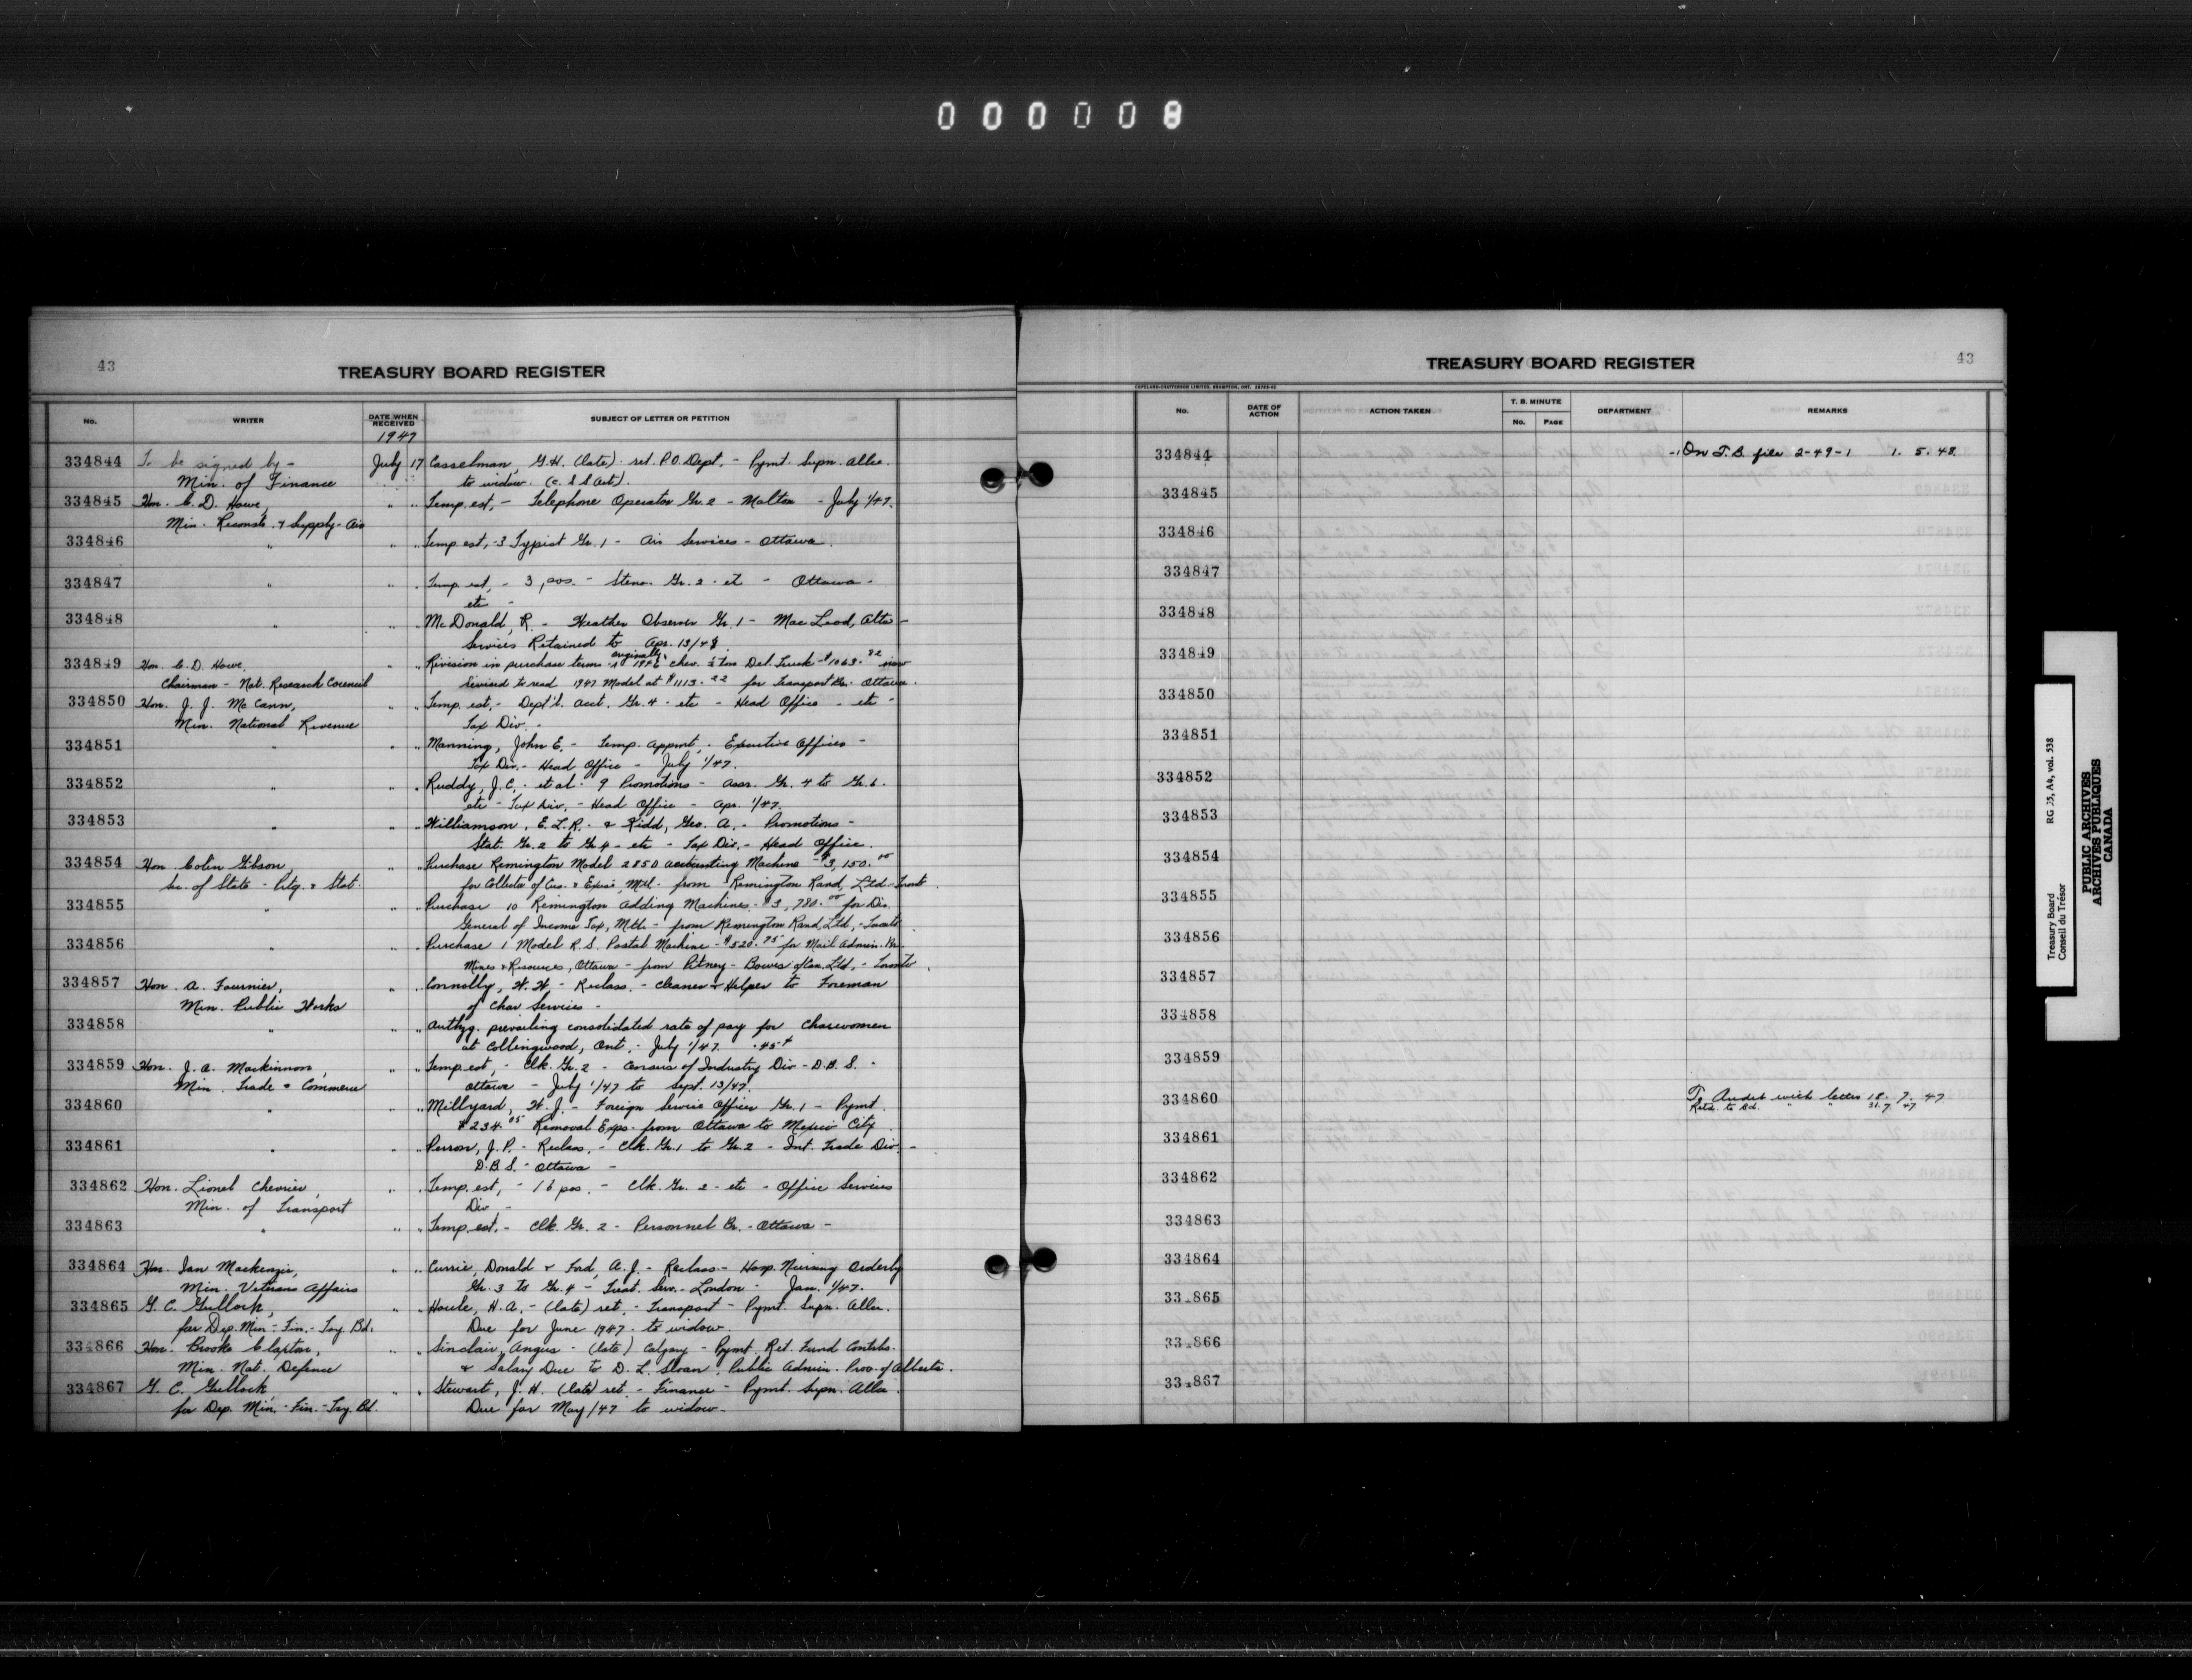 000008
43
TREASURY BOARD REGISTER
No. WRITER DATE WHEN RECEIVED SUBJECT OF LETTER OR PETITION
1947
334844 To be signed by - July 17 Casselman, G.H. (late) ret. P.O. Dept. - Pymt. Supn. Allce.
Min. of Finance to widow. (C.S.S. Act).
334845 Hon. C. D. Howe, " " Temp. est, - Telephone Operator Gr. 2 - Malton - July 1/47.
Min. Reconst. & Supply - Air
334846 " " " Temp est, - 3 Typist Gr. 1 - Air Services - Ottawa.
334847 " " " Temp est, - 3 pos. - Steno. Gr. 2 - etc - Ottawa -
etc -
334848 " " " McDonald, R. - Weather Observer Gr. 1 - MacLeod, Alta -
Services Retained to Apr. 13/48.
334849 Hon. C. D. Howe, " " Revision in purchase terms - originally 1946 Chev. ½ ton Del. Truck - $1063.82 now
Chairman - Nat. Research Council revised to read 1947 Model at $1113.22 for Transport Br. - Ottawa.
334850 Hon. J. J. McCann, " " Temp. est, - Dept'l. Acct. Gr. 4 - etc - Head Office - etc -
Min. National Revenue Tax Div. -
334851 " " " Manning, John E. - Temp. Appmt. - Executive Offices -
Tax Div. - Head Office - July 1/47.
334852 " " " Ruddy, J.C. - et al - 9 Promotions - Assr. Gr. 4 to Gr. 6.
etc - Tax Div. - Head Office - Apr. 1/47.
334853 " " " Williamson, E.L.R. - & Kidd, Geo. A. - Promotions -
Stat. Gr. 2 to Gr. 4 - etc - Tax Div. - Head Office.
334854 Hon Colin Gibson, " " Purchase Remington Model 2850 Accounting Machine - $3,150.00
Sec. of State - Ptg. & Stat. for Collector of Cus. & Excise, Mtl. - from Remington Rand, Ltd - Toronto.
334855 " " " Purchase 10 Remington Adding Machines - $3,780.00 for Dir.
General of Income Tax, Mtl. - from Remington Rand, Ltd, - Toronto
334856 " " " Purchase 1 Model R.S. Postal Machine - $520.75 for Mail Admin. Br.
Mines & Resources, Ottawa - from Pitney - Bowes of Can. Ltd, - Toronto.
334857 Hon. A. Fournier, " " Connolly, W.H. - Reclass. - Cleaner & Helper to Foreman
Min. Public Works of Char Services -
334858 " " " Authzg. prevailing consolidated rate of pay for Charwomen
at Collingwood, Ont, - July 1/47 .45¢
334859 Hon. J. A. Mackinnon, " " Temp est, - Clk. Gr. 2 - Census of Industry Div - D.B.S. -
Min. Trade & Commerce Ottawa - July 1/47 to Sept. 13/47.
334860 " " " Millyard, W. J. - Foreign Service Officer Gr. 1 - Pymt.
$234.05 Removal Exps. from Ottawa to Mexico City.
334861 " " " Perron, J. P. - Reclass. - Clk. Gr. 1 to Gr. 2 - Int. Trade Div. -
D.B.S. - Ottawa -
334862 Hon. Lionel Chevrier, " " Temp. est, - 16 pos. - Clk. Gr. 2 - etc - Office Services
Min. of Transport Div -
334863 " " " Temp. est, - Clk. Gr. 2 - Personnel Br. - Ottawa -
334864 Hon. Ian Mackenzie, " " Currie, Donald & Ford, A. J. - Reclass - Hosp. Nursing Orderly
Min. Veterans Affairs Gr. 3 to Gr. 4 - Treat. Serv. - London - Jan. 1/47.
334865 G. C. Gullock, " " Houle, H.A. - (late) ret. - Transport - Pymt. Supn. Allce.
for Dep. Min - Fin. - Tsy. Bd. Due for June 1947 - to widow.
334866 Hon. Brooke Claxton, " " Sinclair, Angus - (late) Calgary - Pymt. Ret. Fund Contribs.
Min. Nat. Defence & Salary Due to D. L. Sloan, Public Admin. Prov. of Alberta.
334867 G. C. Gullock, " " Stewart, J. H. (late) ret. - Finance - Pymt. Supn. Allce.
for Dep. Min. - Fin. - Tsy. Bd. Due for May/47 to widow -
TREASURY BOARD REGISTER 43
COPELAND-CHATTERSON LIMITED, BRAMPTON, ONT.
No. DATE OF ACTION ACTION TAKEN T. B. MINUTE No. PAGE DEPARTMENT REMARKS
334844 On T.B. file 2-49-1 1. 5. 48.
334845
334846
334847
334848
334849
334850
334851
334852
334853
334854
334855
334856
334857
334858
334859
334860 To Audit with letter 18. 7. 47
Retd. to Bd. " " 31. 7. 47
334861
334862
334863
334864
33 865
33 866
33 867
Treasury Board RG 55, A4, vol. 538
Conseil du Trésor
PUBLIC ARCHIVES
ARCHIVES PUBLIQUES
CANADA